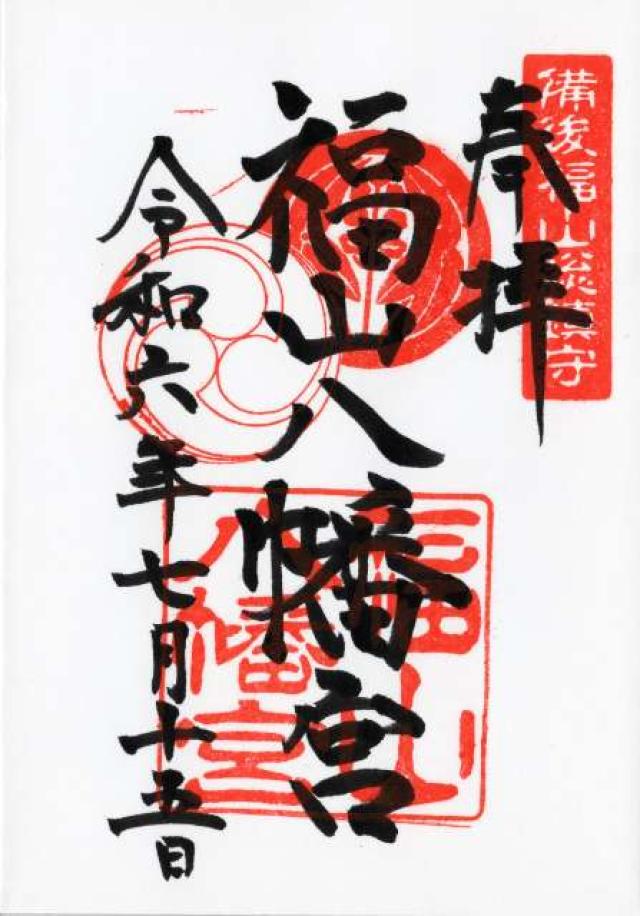 備後福山総鎮守
奉拝
福山八幡宮
福山
八幡宮
令和六年七月十五日